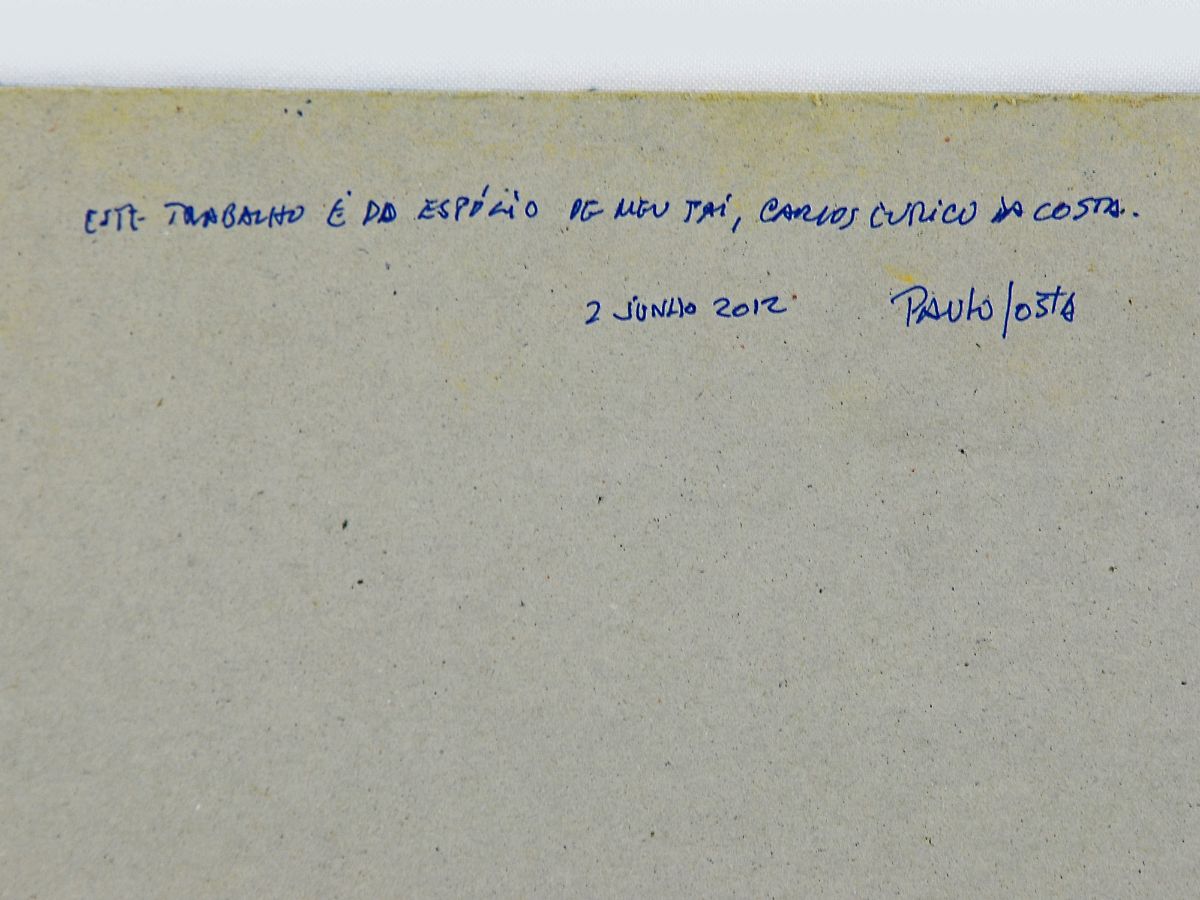 ESTE TRABALHO É DO ESPÓLIO DE MEU PAI, CARLOS EURICO DA COSTA.
2 JUNHO 2012 PAULO COSTA